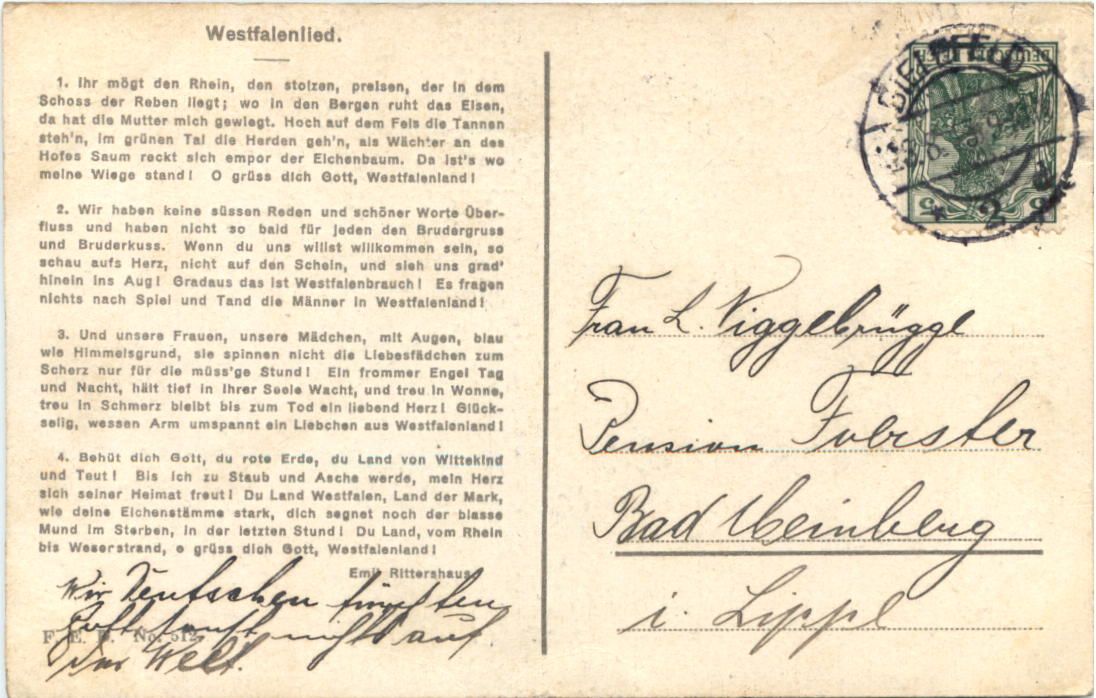 Westfalenlied.
1. Ihr mögt den Rhein, den stolzen, preisen, der in dem
Schoss der Reben liegt; wo in den Bergen ruht das Eisen,
da hat die Mutter mich gewiegt. Hoch auf dem Fels die Tannen
steh'n, im grünen Tal die Herden geh'n, als Wächter an des
Hofes Saum reckt sich empor der Eichenbaum. Da ist's wo
meine Wiege stand! O grüss dich Gott, Westfalenland!
2. Wir haben keine süssen Reden und schöner Worte Über-
fluss und haben nicht so bald für jeden den Brudergruss
und Bruderkuss. Wenn du uns willst willkommen sein, so
schau aufs Herz, nicht auf den Schein, und sieh uns grad'
hinein ins Aug! Gradaus das ist Westfalenbrauch! Es fragen
nichts nach Spiel und Tand die Männer in Westfalenland!
3. Und unsere Frauen, unsere Mädchen, mit Augen, blau
wie Himmelsgrund, sie spinnen nicht die Liebesfädchen zum
Scherz nur für die müss'ge Stund! Ein frommer Engel Tag
und Nacht, hält tief in ihrer Seele Wacht, und treu in Wonne,
treu in Schmerz bleibt bis zum Tod ein liebend Herz! Glück-
selig, wessen Arm umspannt ein Liebchen aus Westfalenland!
4. Behüt dich Gott, du rote Erde, du Land von Wittekind
und Teut! Bis ich zu Staub und Asche werde, mein Herz
sich seiner Heimat freut! Du Land Westfalen, Land der Mark,
wie deine Eichenstämme stark, dich segnet noch der blasse
Mund im Sterben, in der letzten Stund! Du Land, vom Rhein
bis Weserstrand, o grüss dich Gott, Westfalenland!
Emil Rittershaus
Wir Deutschen fürchten
Gott sonst nichts auf
der Welt.
No. 512
BIELEFELD
* 2
DEUTSCHES REICH
5 5
Frau L. Niggebrügge
Pension Foerster
Bad Meinberg
i. Lippe